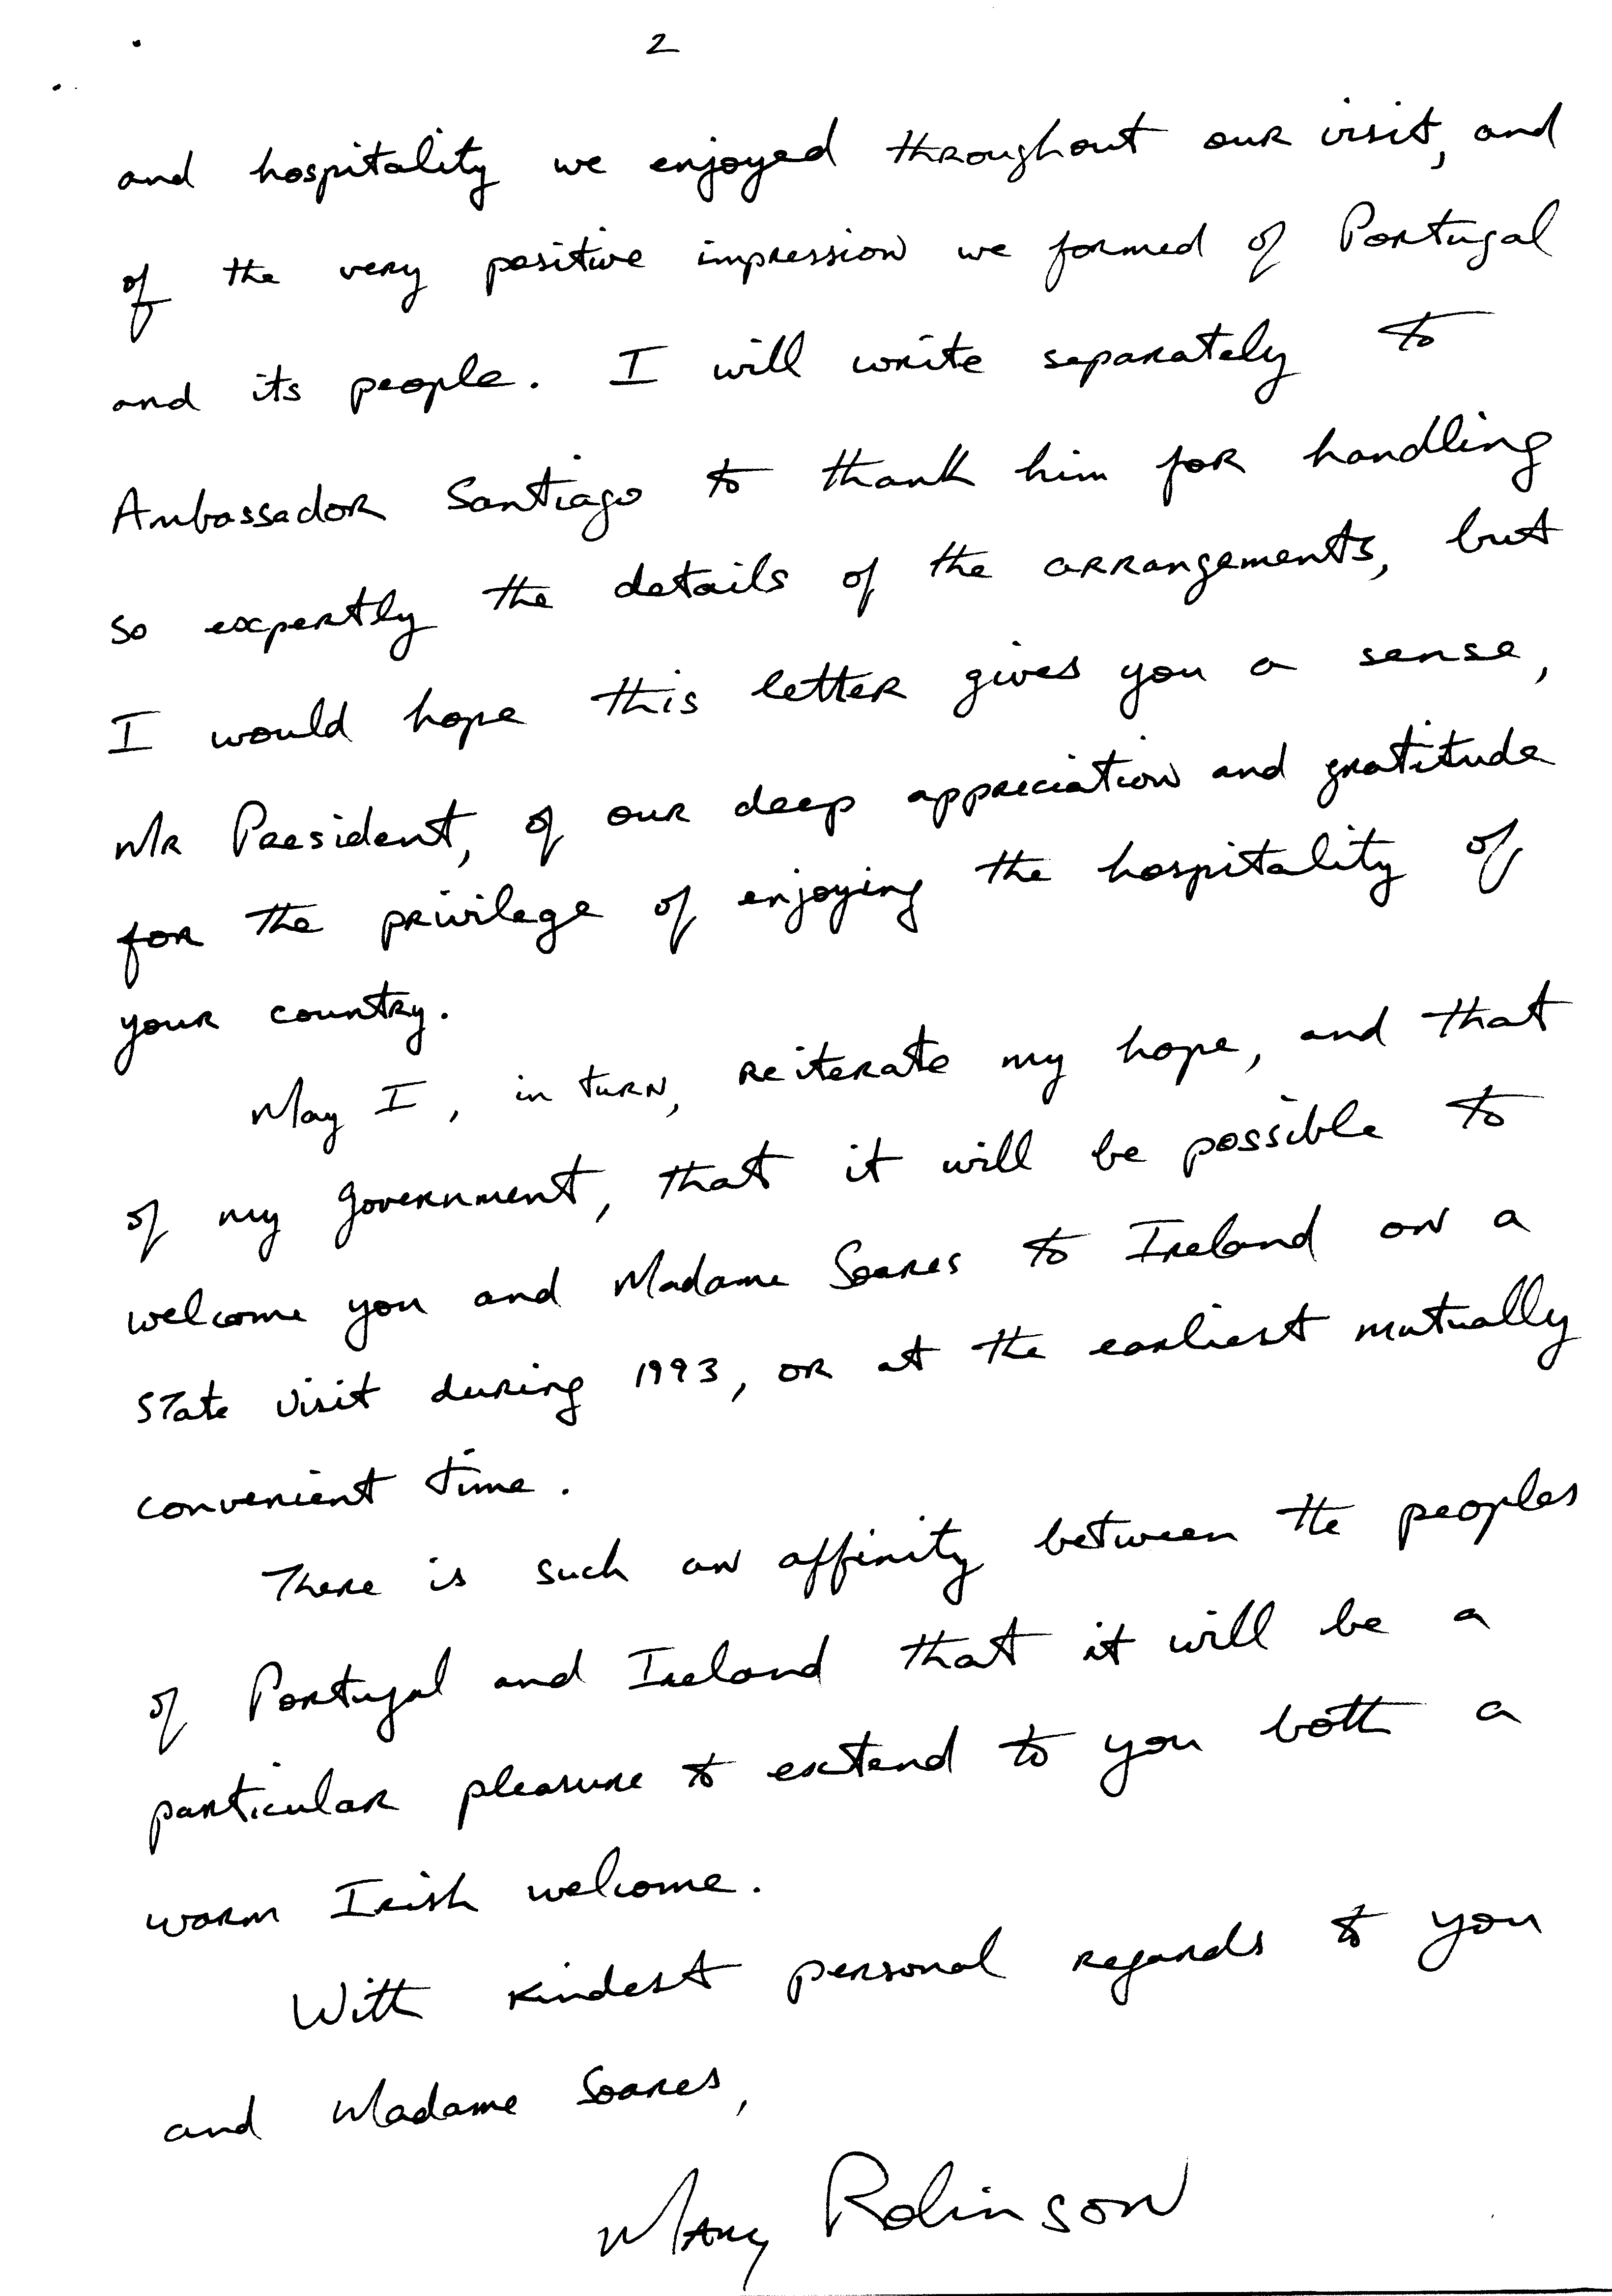 2
and hospitality we enjoyed throughout our visit, and
of the very positive impression we formed of Portugal
and its people. I will write separately to
Ambassador Santiago to thank him for handling
so expertly the details of the arrangements, but
I would hope this letter gives you a sense,
Mr President, of our deep appreciation and gratitude
for the privilege of enjoying the hospitality of
your country.
May I, in turn, reiterate my hope, and that
of my government, that it will be possible to
welcome you and Madame Soares to Ireland on a
State visit during 1993, or at the earliest mutually
convenient time.
There is such an affinity between the peoples
of Portugal and Ireland that it will be a
particular pleasure to extend to you both a
warm Irish welcome.
With kindest personal regards to you
and Madame Soares,
Mary Robinson